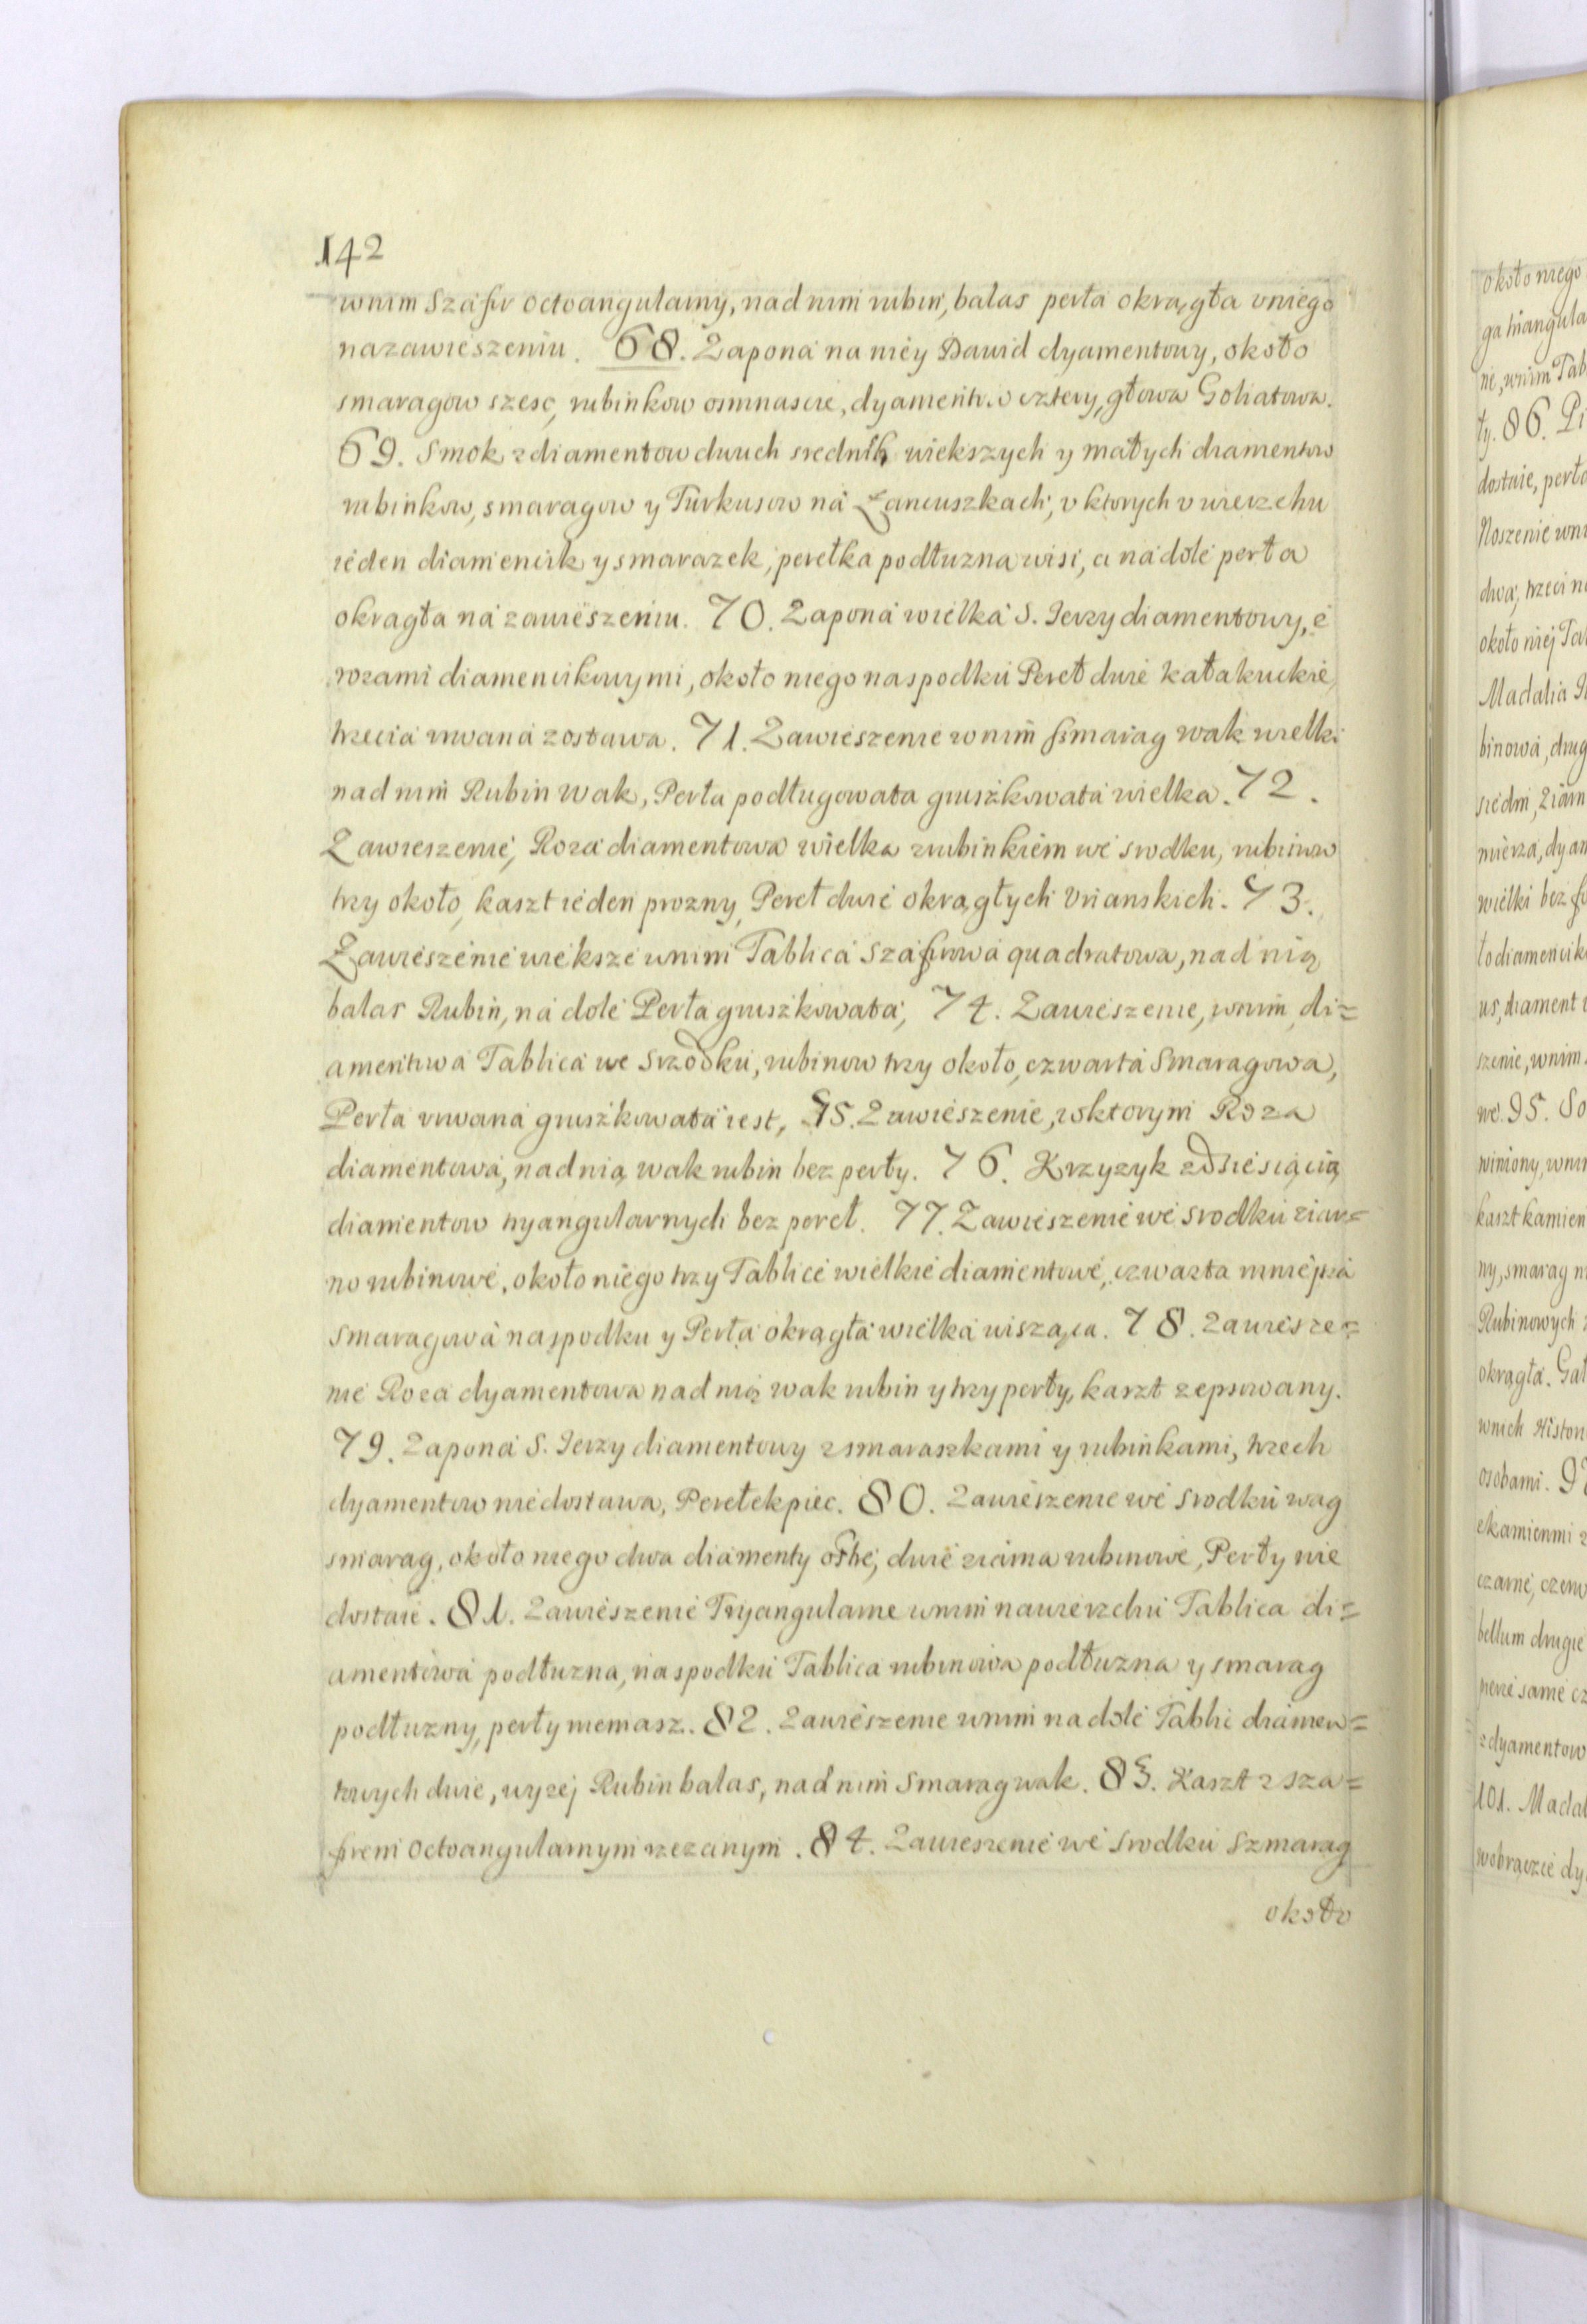 142
wnim Szafir octoangularny, nad nim rubin, balas perła okrągła vniego
nazawieszeniu. 68. Zapona na niey Dawid dyamentowy, około
smaragow szesc, rubinkow osmnascie, dyamentow cztery, głowa Goliatowa.
69. Smok z diamentow dwuch srednich wiekszych y małych diamentow
rubinkow, smaragow y Turkusow na Łancuszkach, v ktorych v wierzchu
ieden diamencik y smarazek, perełka podłuzna wisi, a na dole perła
okragła na zawieszeniu. 70. Zapona wielka S. Jerzy diamentowy, z
rozami diamencikowymi, około niego naspodku Pereł dwie kałakuckie,
trzecia vrwana zostawa. 71. Zawieszenie wnim smarag wak wielki
nad nim Rubin wak, Perła podługowata gruszkowata wielka. 72.
Zawieszenie, Roza diamentowa wielka z rubinkiem we srodku, rubinow
trzy około, kaszt ieden prozny, Pereł dwie okrągłych Vrianskich. 73.
Zawieszenie wieksze wnim Tablica Szafirowa quadratowa, nad nią
balas Rubin, na dole Perła gruszkowata, 74. Zawieszenie, wnim di=
amentowa Tablica we Srzodku, rubinow trzy około, czwarta Smaragowa,
Perła vrwana gruszkowata iest, 75. Zawieszenie, w ktorym Roza
diamentowa, nad nią wak rubin bez perły. 76. Krzyzyk z dziesiącią
diamentow tryangularnych bez pereł. 77. Zawieszenie we srodku ziar=
no rubinowe, około niego trzy Tablice wielkie diamentowe, czwarta mnieysza
smaragowa na spodku y Perła okragła wielka wisząca. 78. Zawiesze=
nie Roza dyamentowa nad nią wak rubin y trzy perły, kaszt zepsowany.
79. Zapona S. Jerzy diamentowy z smaraszkami y rubinkami, trzech
dyamentow niedostawa, Perełek piec. 80. Zawieszenie we srodku wag
smarag, około niego dwa diamenty ostre, dwie ziarna rubinowe, Perły nie
dostaie. 81. Zawieszenie Tryangularne wnim nawierzchu Tablica di=
amentowa podłuzna, naspodku Tablica rubinowa podłuzna y smarag
podłuzny, perły niemasz. 82. Zawieszenie wnim na dole Tablic diamen=
towych dwie, wyzej Rubin balas, nad nim Smarag wak. 83. Kaszt z sza=
firem octoangularnym rzezanym. 84. Zawieszenie we srodku Szmarag
około
około niego
ga triangula
nie, wnim Tab
ły. 86. Pi
dostaie, perło
Noszenie wni
dwa, trzeci n
około niej Ta
Madalia
binowa, drug
siedm, ziarn
mierza, dyam
wielki bez
ło diamencik
us, diament
szenie, wnim
we. 95. So
winiony, wnim
kaszt kamien
ny, smarag n
Rubinowych
okrągła. Gał
wnich Histori
osobami. 9
czarne, czerw
bellum drugie
same cz
z dyamentow
101. Madal
wobrączce dy